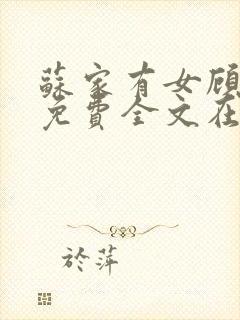 蘇家有女顾
免費全文在
於萍